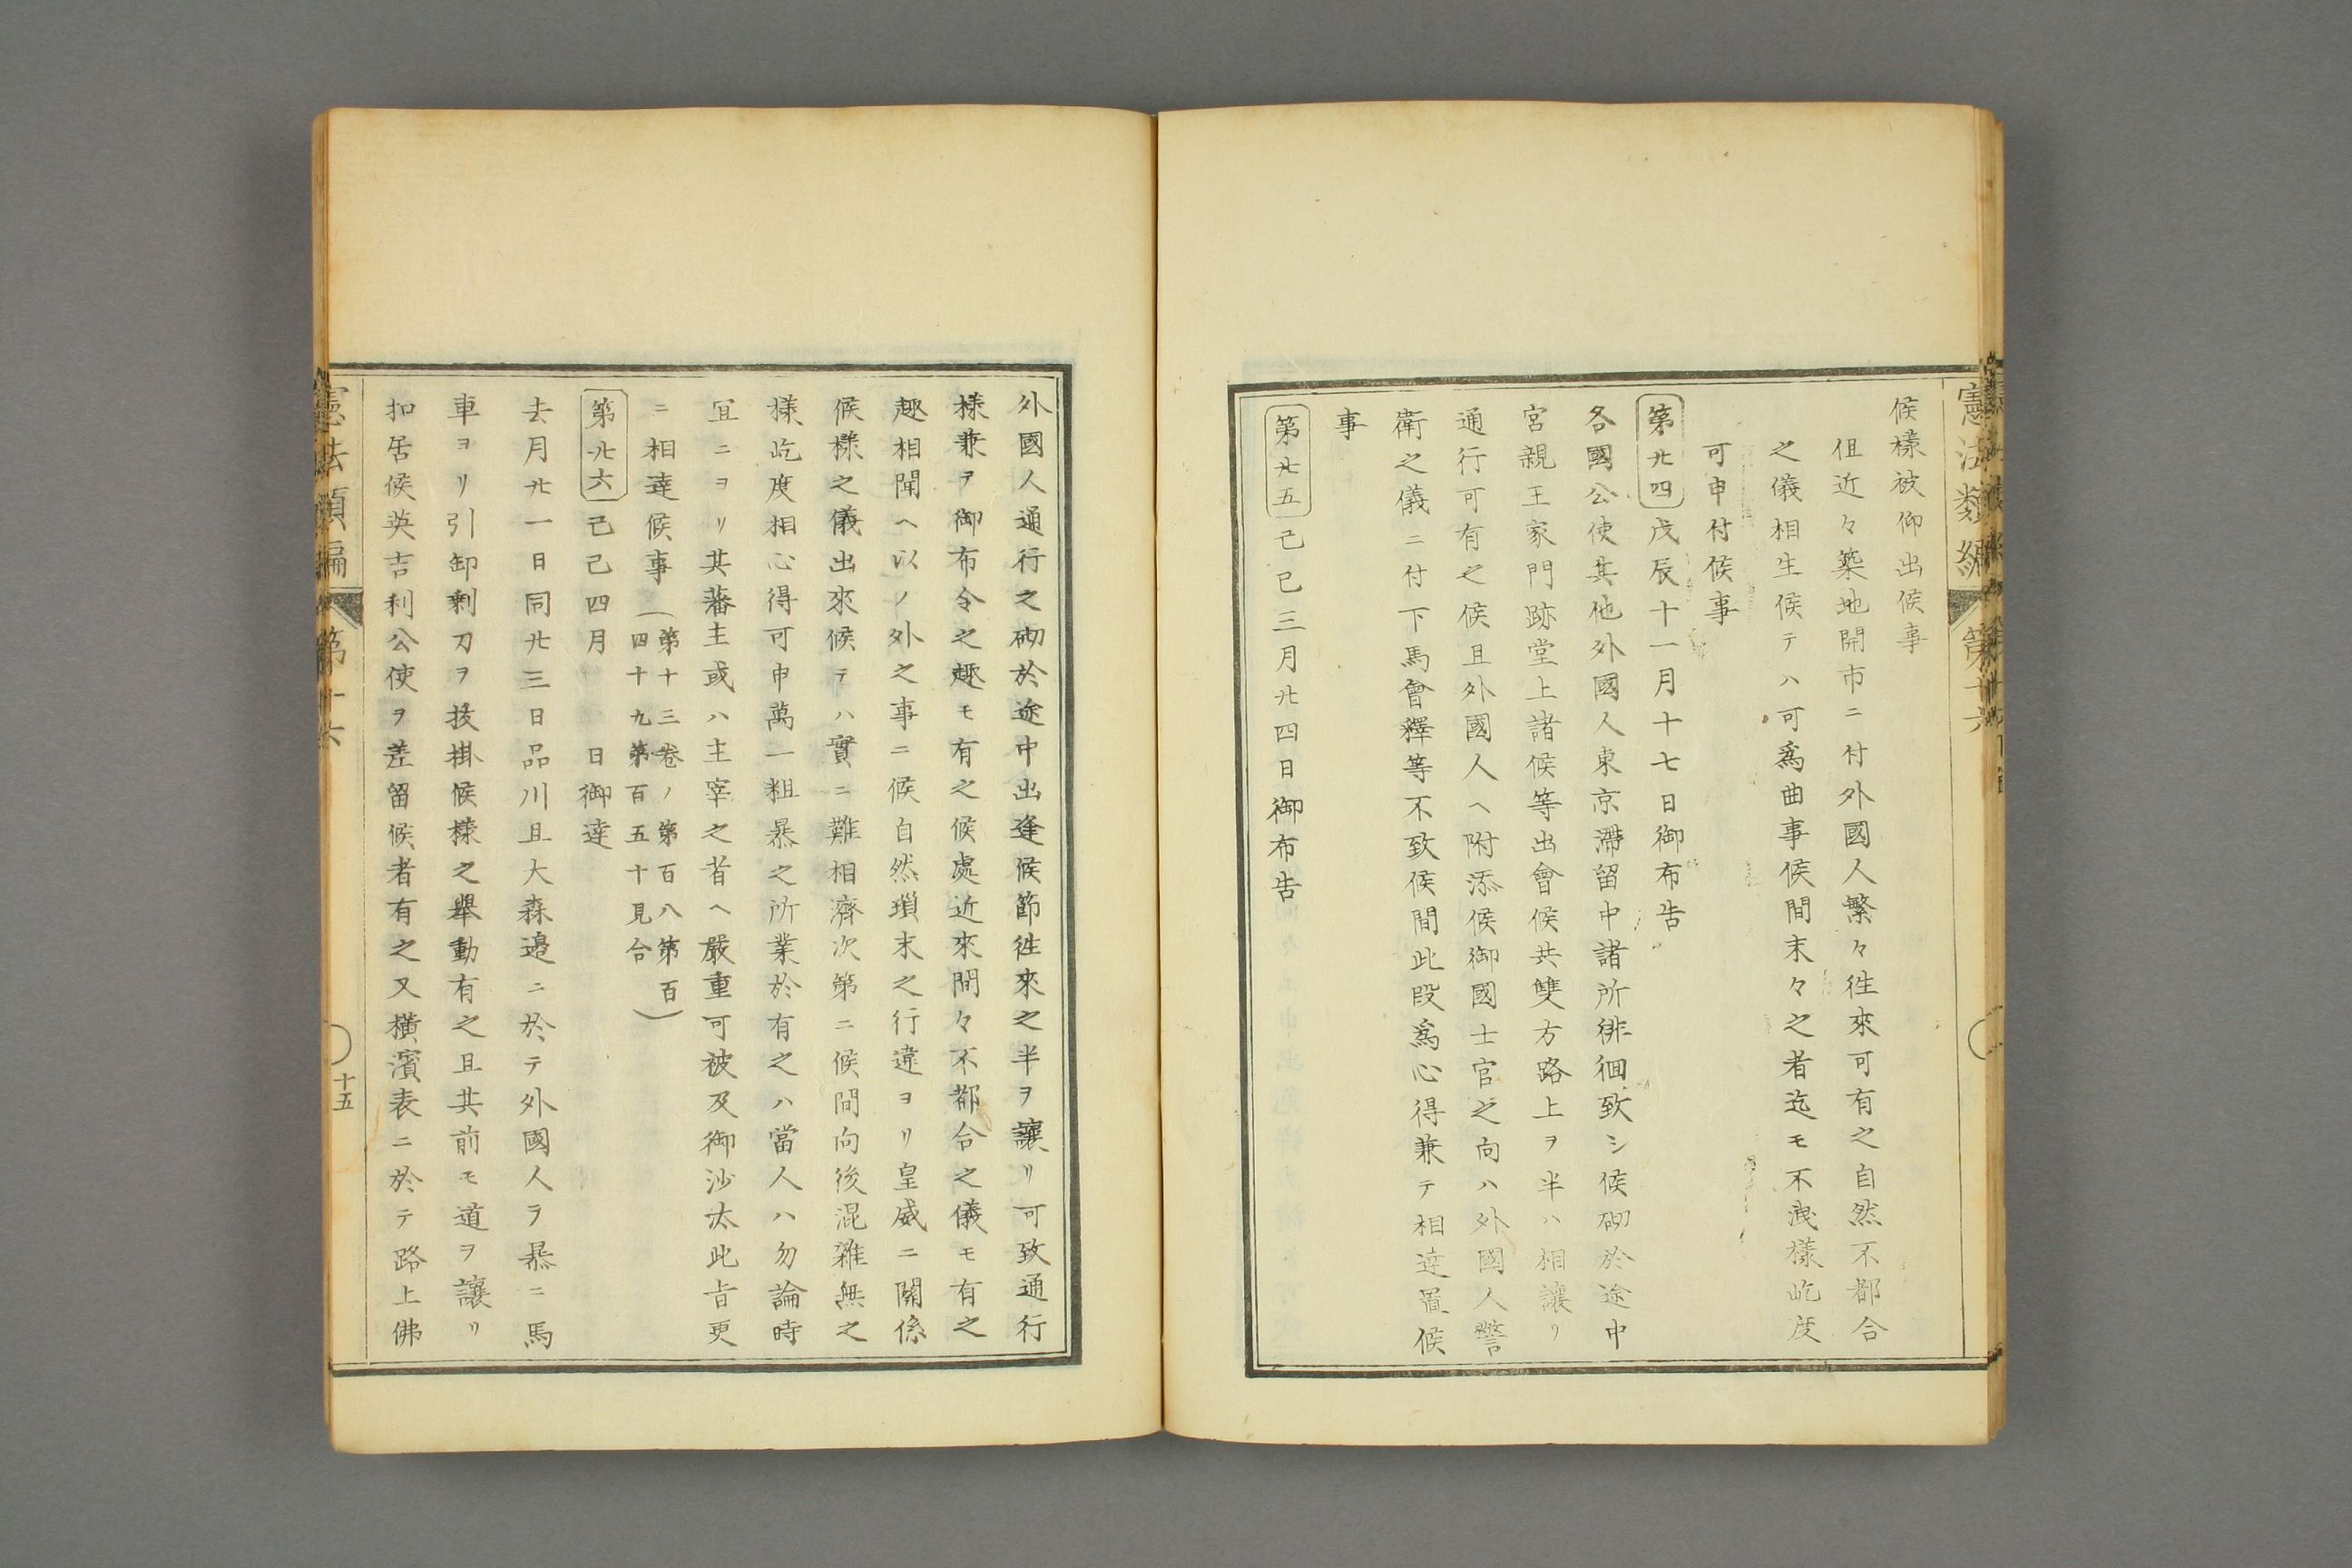 憲法類編
第十六
候樣被仰出候事
但近々築地開市ニ付外國人繁々徃來可有之自然不都合
之儀相生候テハ可爲曲事候間末々之者迄モ不洩樣屹度
可申付候事
第廿四 戊辰十一月十七日御布告
各國公使其他外國人東京滯留中諸所徘徊致シ候砌於途中
宮親王家門跡堂上諸候等出會候共雙方路上ヲ半ハ相讓リ
通行可有之候且外國人ヘ附添候御國士官之向ハ外國人警
衛之儀ニ付下馬會釋等不致候間此段爲心得兼テ相達置候
事
第廿五 己巳三月廿四日御布告
外國人通行之砌於途中出逢候節徃來之半ヲ讓リ可致通行
樣兼テ御布令之趣モ有之候處近來間々不都合之儀モ有之
趣相聞ヘ以ノ外之事ニ候自然瑣末之行違ヨリ皇威ニ關係
候樣之儀出來候テハ實ニ難相濟次第ニ候間向後混雜無之
樣屹度相心得可申萬一粗暴之所業於有之ハ當人ハ勿論時
宜ニヨリ其藩主或ハ主宰之者ヘ嚴重可被及御沙汰此旨更
ニ相達候事(第十三卷ノ第百八第百
四十九第百五十見合)
第廿六 己巳四月 日御達
去月廿一日同廿三日品川且大森邊ニ於テ外國人ヲ暴ニ馬
車ヨリ引卸剩刀ヲ拔掛候樣之擧動有之且其前モ道ヲ讓リ
扣居候英吉利公使ヲ差留候者有之又橫濱表ニ於テ路上佛
憲法類編
第十六
十五